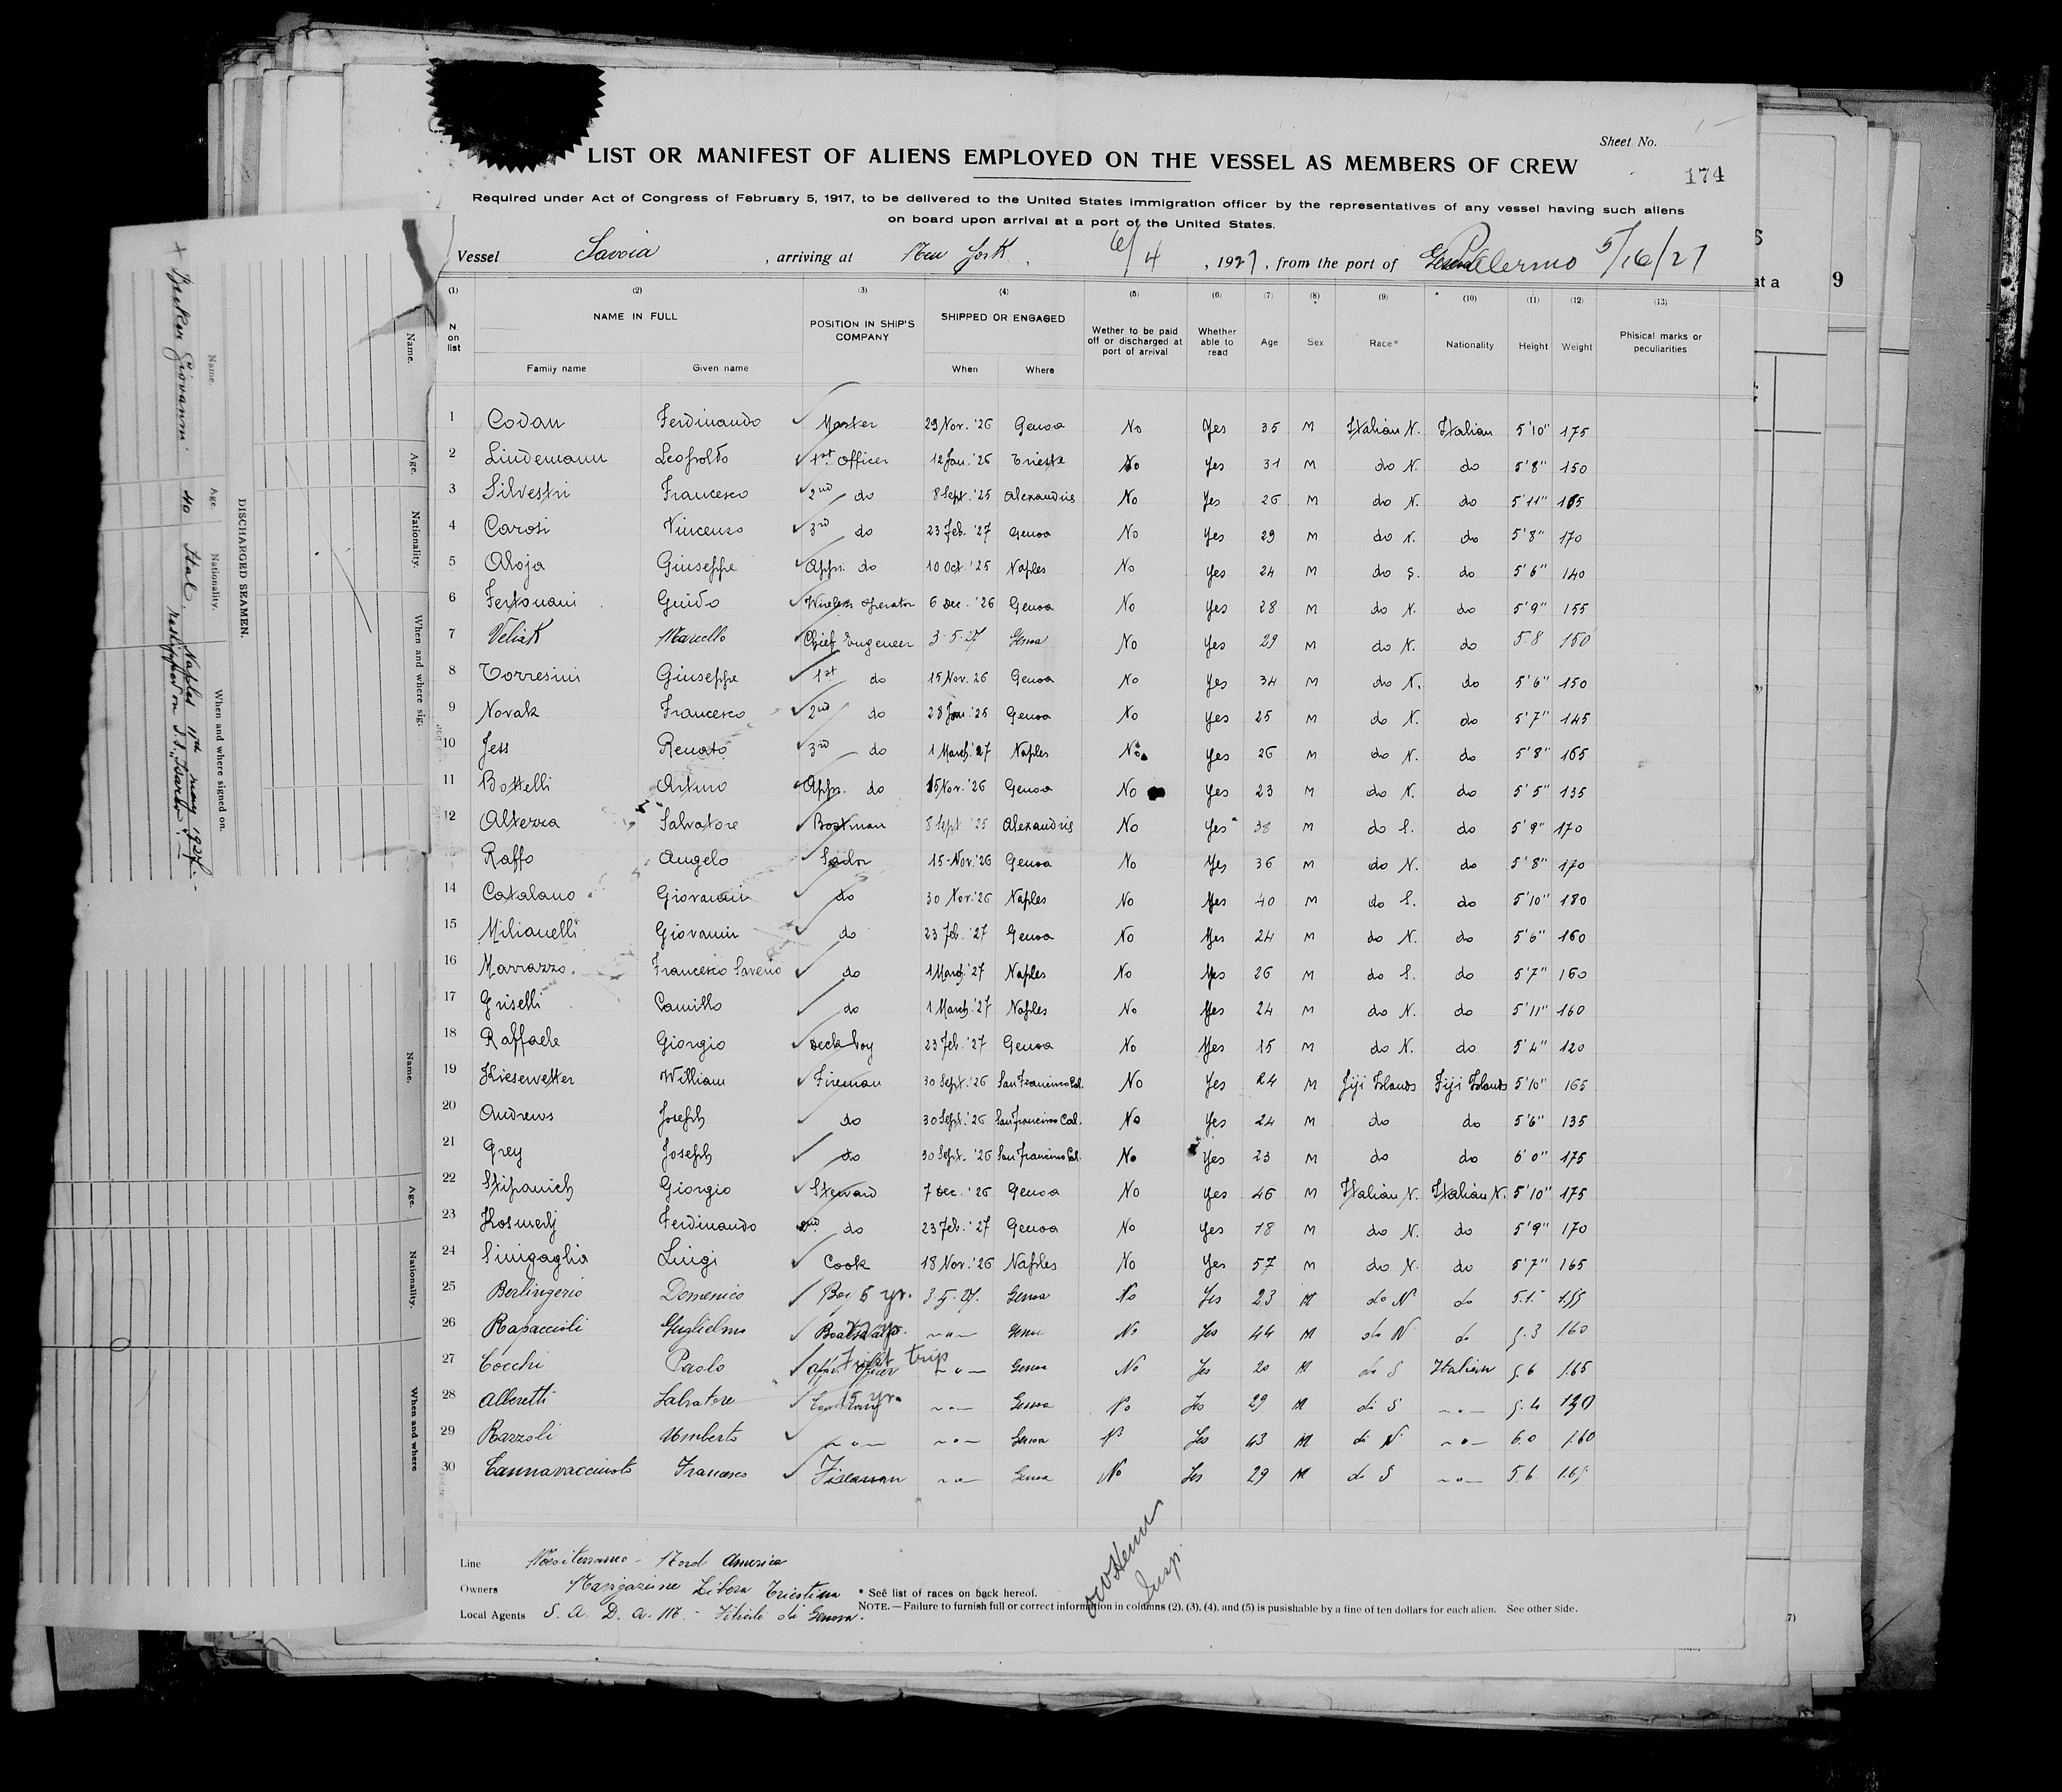 Sheet No. 1
LIST OR MANIFEST OF ALIENS EMPLOYED ON THE VESSEL AS MEMBERS OF CREW
174
Required under Act of Congress of February 5, 1917, to be delivered to the United States immigration officer by the representatives of any vessel having such aliens
on board upon arrival at a port of the United States.
Vessel Savoia , arriving at New York , 6/4 , 1927 , from the port of Palermo 5/16/27
(1) (2) (3) (4) (5) (6) (7) (8) (9) (10) (11) (12) (13)
N on list NAME IN FULL POSITION IN SHIP'S COMPANY SHIPPED OR ENGAGED Wether to be paid off or discharged at port of arrival Whether able to read Age Sex Race* Nationality Height Weight Phisical marks or peculiarities
Family name Given name When Where
1 Codan Ferdinando Master 29 Nov. '26 Genoa No Yes 35 M Italian N. Italian 5'10" 175
2 Lindemann Leopoldo 1st Officer 12 Jan. '26 Trieste No Yes 31 M do N. do 5'8" 150
3 Silvestri Francesco 2nd do 8 Sept. '25 Alexandria No Yes 26 M do N. do 5'11" 165
4 Carosi Vincenzo 3rd do 23 Feb. '27 Genoa No Yes 29 M do N. do 5'8" 170
5 Aloja Giuseppe Appr. do 10 Oct '25 Naples No Yes 24 M do S. do 5'6" 140
6 Fertonani Guido Wireless operator 6 Dec. '26 Genoa No Yes 28 M do N. do 5'9" 155
7 Veliak Marcello Chief Engeneer 3-5-27 Genoa No Yes 29 M do N. do 5.8 150
8 Torresini Giuseppe 1st do 15 Nov. 26 Genoa No Yes 34 M do N. do 5'6" 150
9 Novak Francesco 2nd do 28 Jan '26 Genoa No Yes 25 M do N. do 5'7" 145
10 Jess Renato 3rd do 1 March '27 Naples No Yes 26 M do N. do 5'8" 165
11 Bottelli Arturo Appr. do 15 Nov. '26 Genoa No Yes 23 M do N. do 5'5" 135
12 Alterra Salvatore Boatman 8 Sept '25 Alexandria No Yes 38 M do S. do 5'9" 170
Raffo Angelo Sailor 15-Nov. '26 Genoa No Yes 36 M do N. do 5'8" 170
14 Catalano Giovanni do 30 Nov. '26 Naples No Yes 40 M do S. do 5'10" 180
15 Milianelli Giovanni do 23 Feb. '27 Genoa No Yes 24 M do N. do 5'6" 160
16 Marrazzo. Francesco Saverio do 1 March '27 Naples No Yes 26 M do S. do 5'7" 160
17 Griselli Camillo do 1 March '27 Naples No Yes 24 M do N. do 5'11" 160
18 Raffaele Giorgio Deck boy 23 Feb. '27 Genoa No Yes 15 M do N. do 5'4" 120
19 Kiesewetter William Fireman 30 Sept. '26 San Francisco Cal. No Yes 24 M Fiji Islands Fiji Islands 5'10" 165
20 Andrews Joseph do 30 Sept. '26 San Francisco Cal. No Yes 24 M do do 5'6" 135
21 Grey Joseph do 30 Sept. '26 San Francisco Cal. No Yes 23 M do do 6'0" 175
22 Stipanich Giorgio Steward 7 Dec. '26 Genoa No Yes 46 M Italian N. Italian N. 5'10" 175
23 Kosmerlj Ferdinando 2nd. do 23 Feb. '27 Genoa No Yes 18 M do N. do 5'9" 170
24 Sinigaglia Luigi Cook 18 Nov. '26 Naples No Yes 57 M do N. do 5'7" 165
25 Berlingerio Domenico Boy 6 yr. 3-5-27. Genoa No Yes 23 M do N do 5.1 155
26 Rapaccioli Guglielmo — " — Genoa No Yes 44 M do N do 5.3 160
27 Cocchi Paolo Appr. Officer First trip — " — Genoa No Yes 20 M do S Italian 5.6 165
28 Alberetti Salvatore 15 yr. — " — Genoa No Yes 29 M do S — " — 5.4 130
29 Razzoli Umberto — " — — " — Genoa No Yes 43 M do N — " — 6.0 160
30 Cannavacciuolo Francesco Fireman — " — Genoa No Yes 29 M do S — " — 5.6
Insp.
Line Mediterraneo - Nord America
Owners Navigazione Libera Triestina
Local Agents S. A. D. A. M. - Filiale di Genova.
* See list of races on back hereof.
NOTE.—Failure to furnish full or correct information in columns (2), (3), (4), and (5) is pusishable by a fine of ten dollars for each alien. See other side.
DISCHARGED SEAMEN.
Name. Age. Nationality. When and where signed on.
Giovanni 40 Ital. Naples 11th may 1927.
Name. Age. Nationality. When and where sig.
Name. Age. Nationality. When and where
at a
9